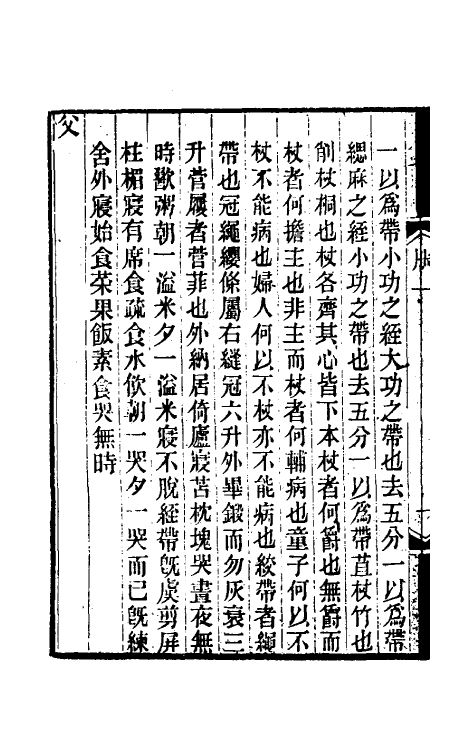 一以爲帶小功之絰大功之帶也去五分一以爲帶
緦麻之絰小功之帶也去五分一以爲帶苴杖竹也
削杖桐也杖各齊其心皆下本杖者何爵也無爵而
杖者何擔主也非主而杖者何輔病也童子何以不
杖不能病也婦人何以不杖亦不能病也絞帶者繩
帶也冠繩纓條屬右縫冠六升外畢鍛而勿灰衰三
升菅屨者菅菲也外納居倚廬寢苫枕塊哭晝夜無
時歠粥朝一溢米夕一溢米寢不脫絰帶旣虞剪屏
柱楣寢有席食疏食水飲朝一哭夕一哭而已旣練
舍外寢始食菜果飯素食哭無時
父